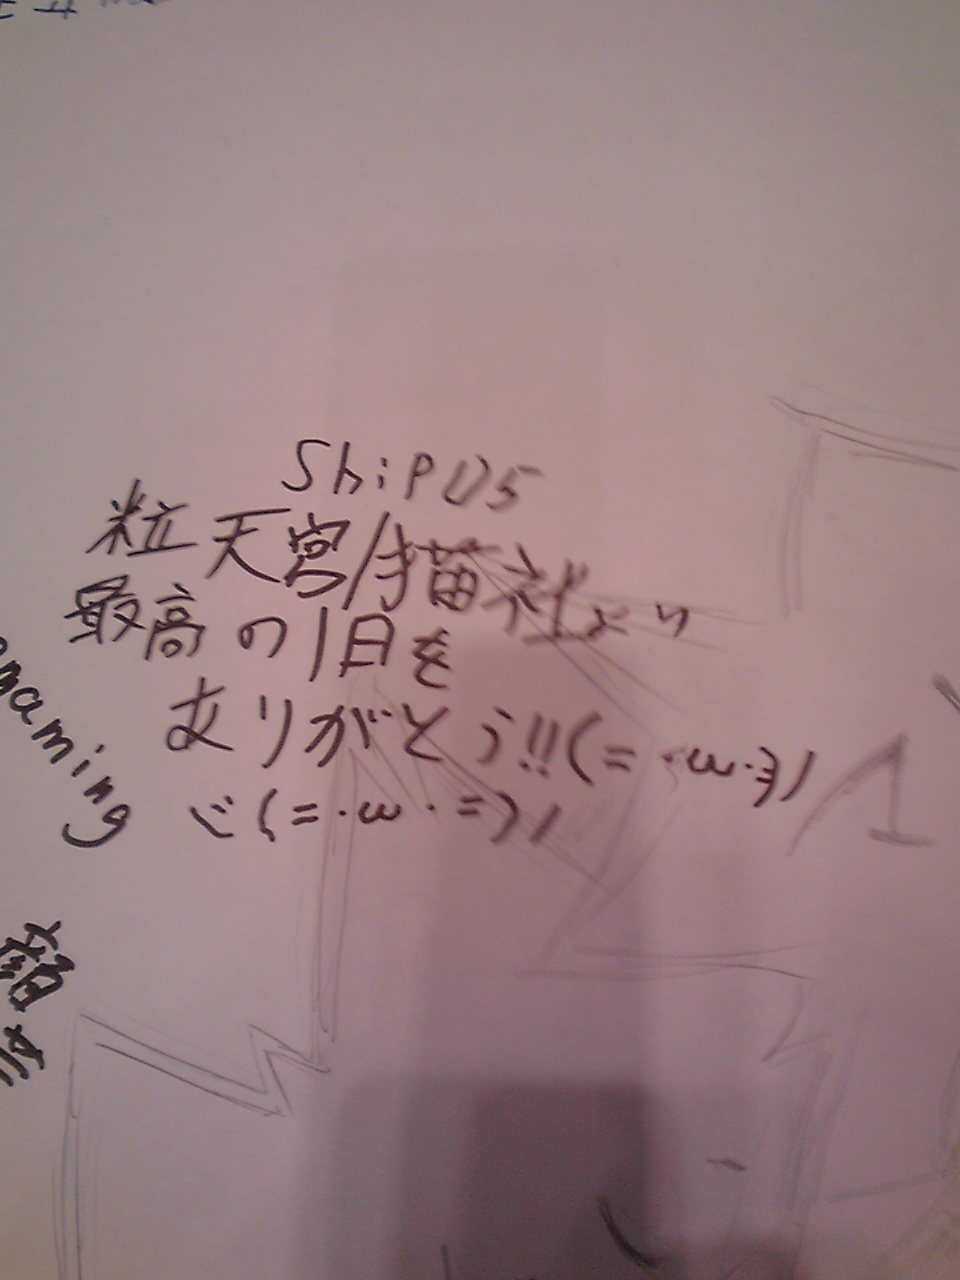 Ship05
粒天宮/猫社より
最高の1日を
ありがとう!!(=・ω・ヨ)ノ
ミ(=・ω・=)ノ
naming